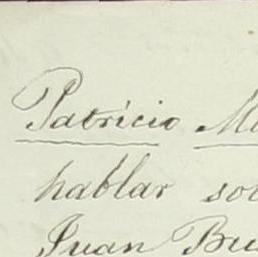 Patricio M
hablar so
Juan Bru